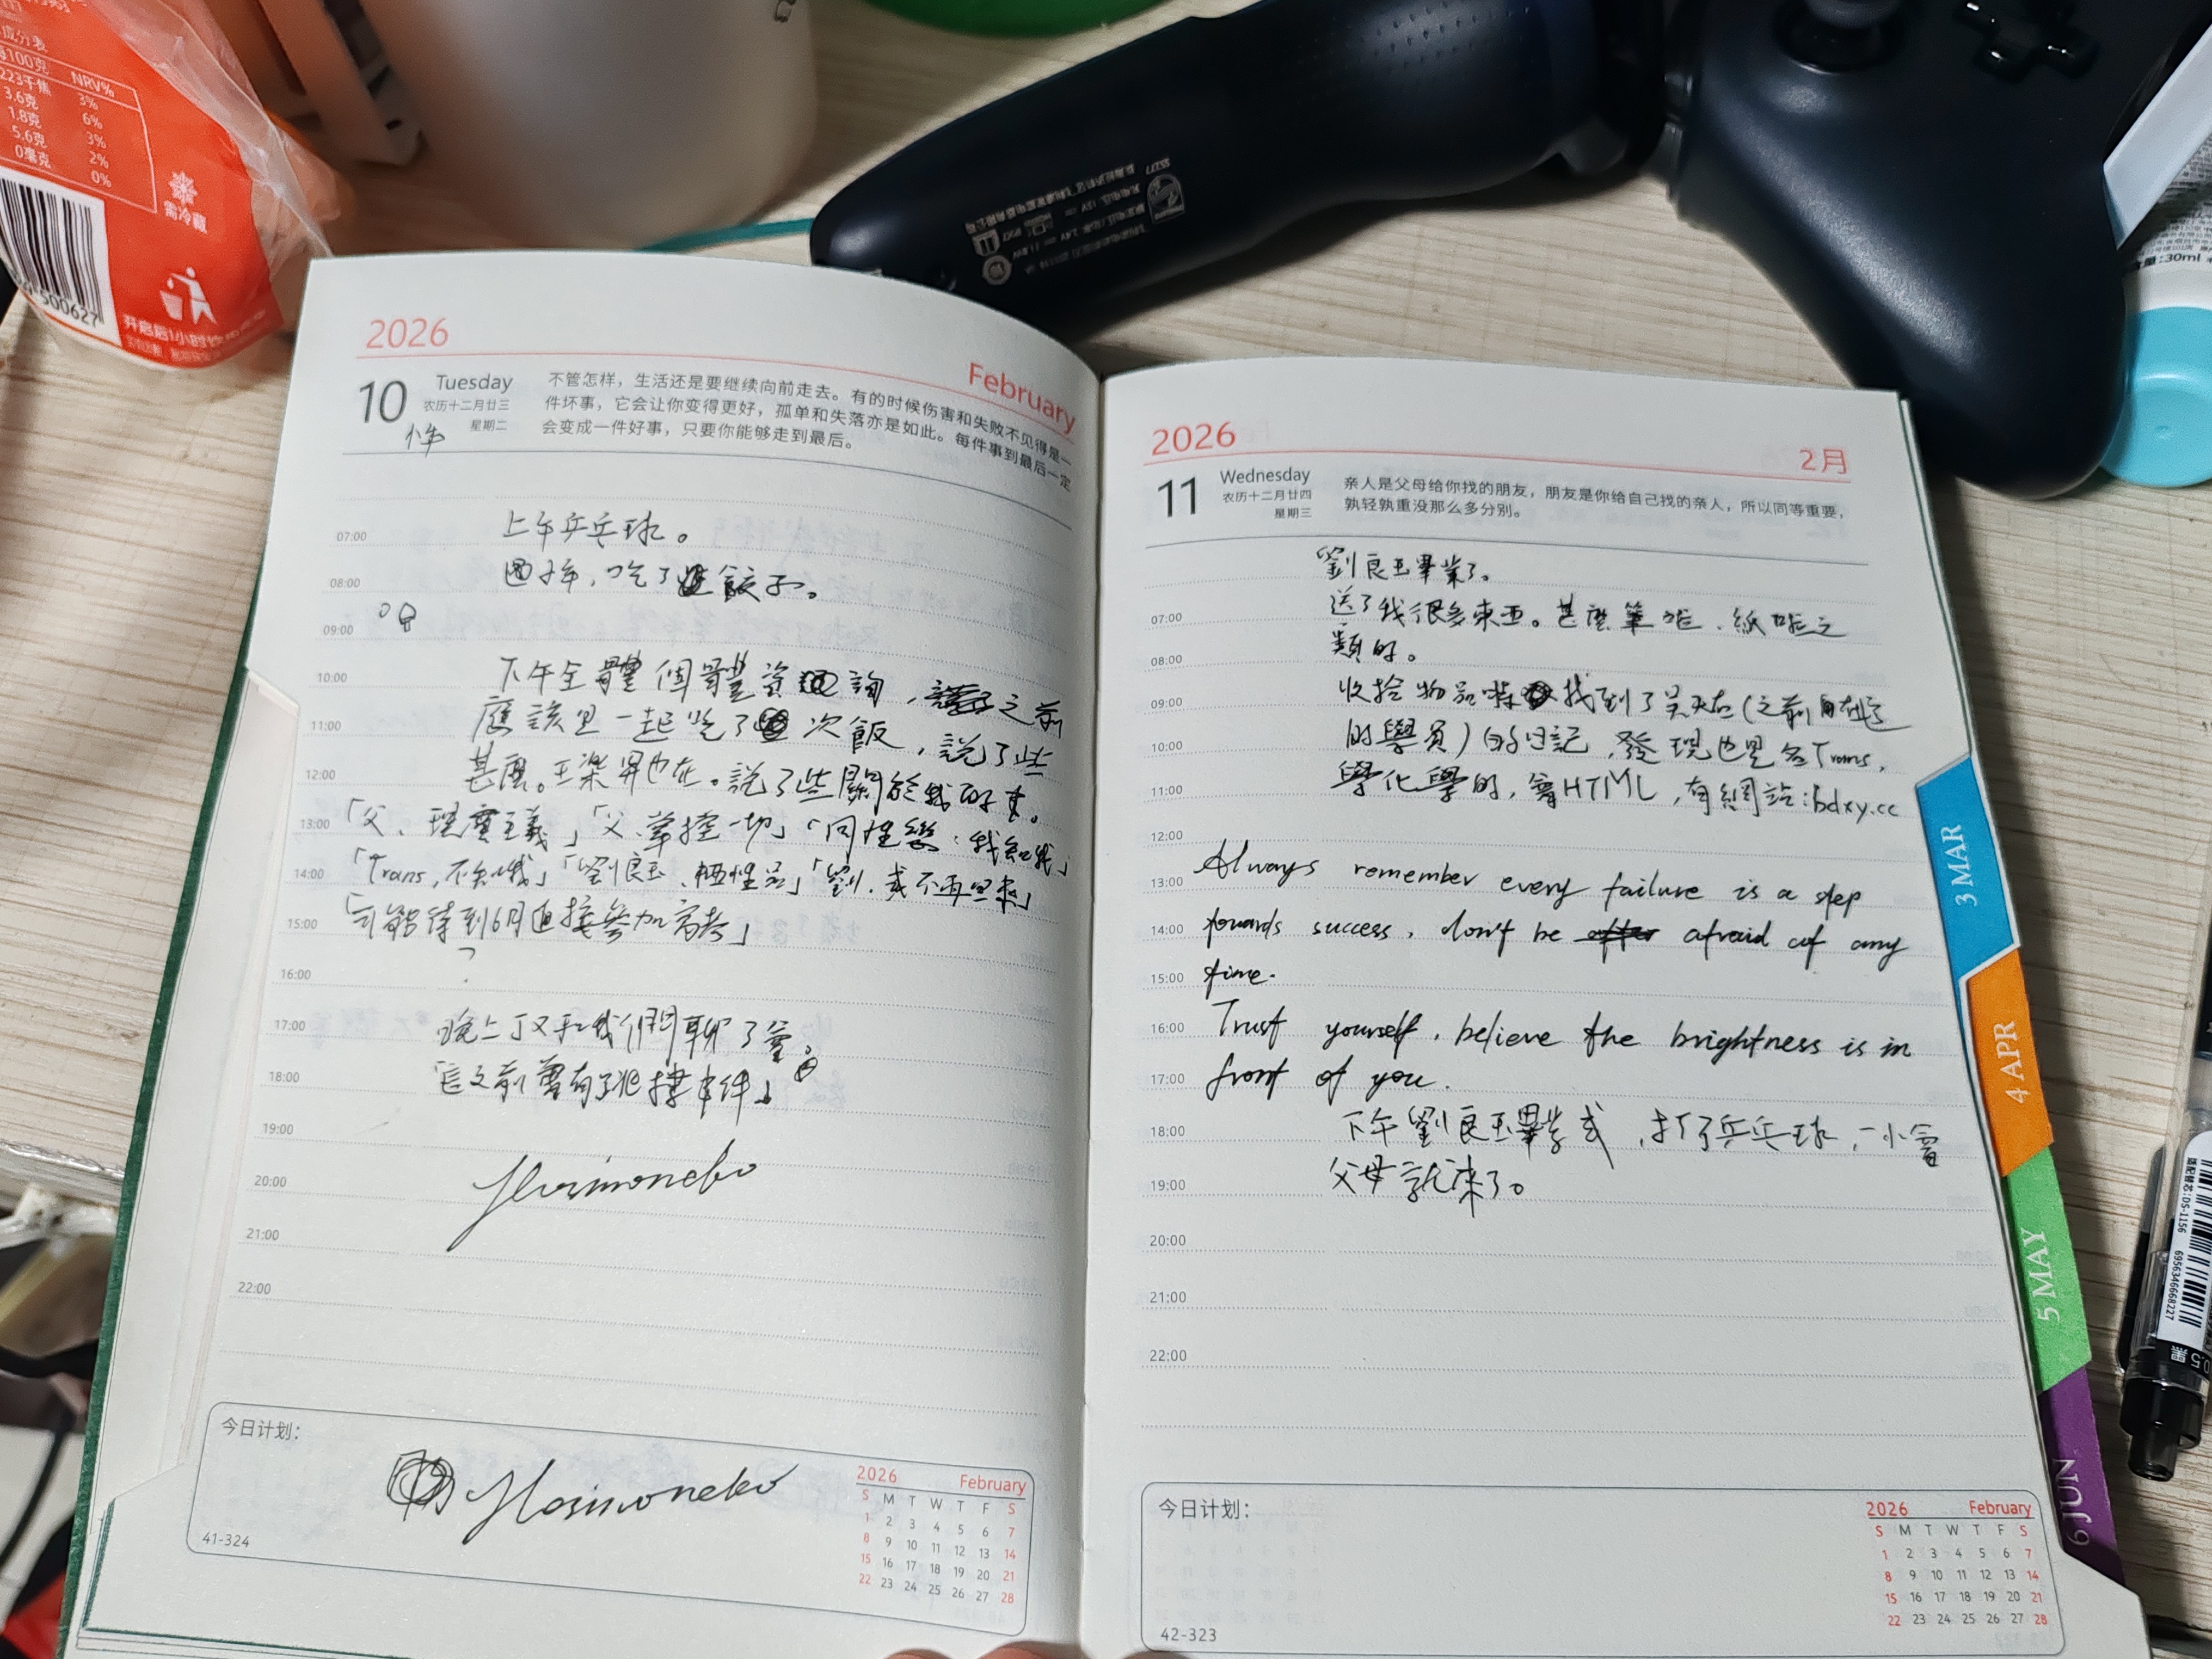 成分表
每100克 NRV%
223千焦 3%
3.6克 6%
1.8克 3%
5.6克 2%
0毫克 0%
需冷藏
500627
2026
February
10
Tuesday
农历十二月廿三
星期二
小年
不管怎样，生活还是要继续向前走去。有的时候伤害和失败不见得是一
件坏事，它会让你变得更好，孤单和失落亦是如此。每件事到最后一定
会变成一件好事，只要你能够走到最后。
07:00
08:00
09:00
10:00
11:00
12:00
13:00
14:00
15:00
16:00
17:00
18:00
19:00
20:00
21:00
22:00
上午乒乓球。
小年，吃了餃子。
下午全體個體資詢，之前
應該是一起吃了次飯，說了些
甚麼。王 昇也在。說了些關於我的事。
「父、現實主義」「父、掌控一切」「同性戀：我」
「Trans，不」「劉良玉、犧牲品」「劉，或不再回來」
「可能待到6月直接參加高考」
?
晚上丁又和我們聊了會。
「這之前曾有了 事件」
Horimoneko
Horimoneko
今日计划：
2026 February
S M T W T F S
1 2 3 4 5 6 7
8 9 10 11 12 13 14
15 16 17 18 19 20 21
22 23 24 25 26 27 28
41-324
2026
2月
11
Wednesday
农历十二月廿四
星期三
亲人是父母给你找的朋友，朋友是你给自己找的亲人，所以同等重要，
孰轻孰重没那么多分别。
07:00
08:00
09:00
10:00
11:00
12:00
13:00
14:00
15:00
16:00
17:00
18:00
19:00
20:00
21:00
22:00
劉良玉畢業了。
送了我很多東西。甚麼筆啦、紙啦之
類的。
收拾物品時找到了吴天(之前
的學員)的日記，發現也是名Trans，
學化學的，會HTML，有網站：bdxy.cc
Always remember every failure is a step
towards success, don't be afraid of any
time.
Trust yourself, believe the brightness is in
front of you.
下午劉良玉畢業式，打了乒乓球，一小會
父母就來了。
今日计划：
2026 February
S M T W T F S
1 2 3 4 5 6 7
8 9 10 11 12 13 14
15 16 17 18 19 20 21
22 23 24 25 26 27 28
42-323
3 MAR
4 APR
5 MAY
6 JUN
30ml
6956346668227
黑
0.5